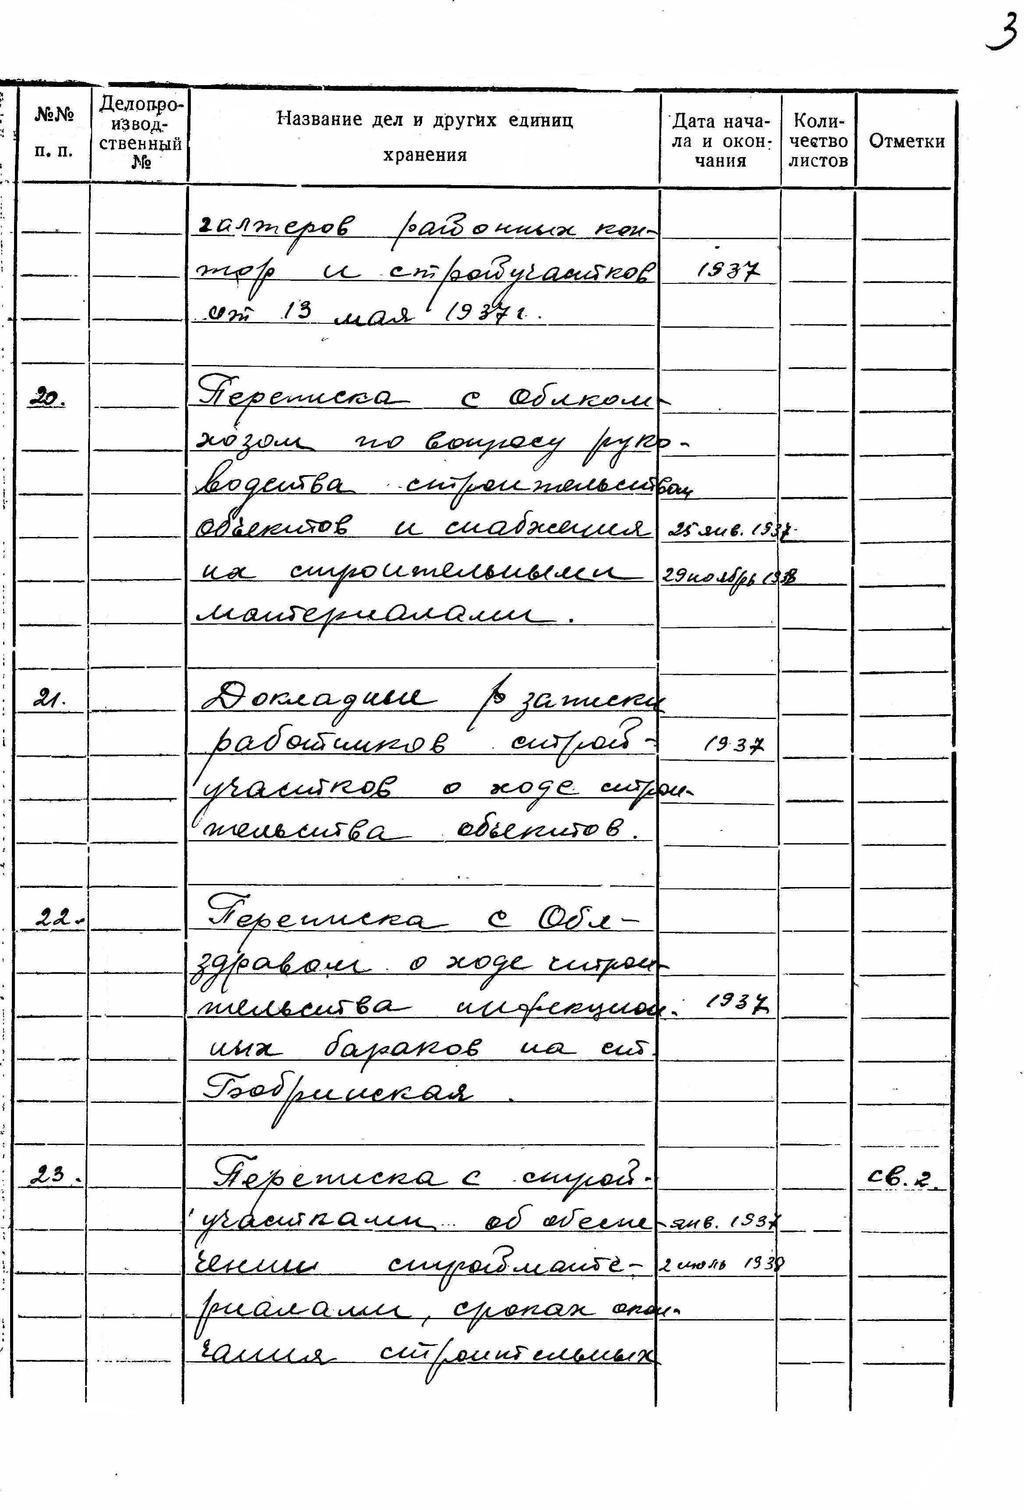 3
№№ п. п. Делопро-изводственный № Название дел и других единиц хранения Дата нача-ла и окон-чания Коли-чество листов Отметки
галтеров районных кон-
тор и стройучастков 1937
от 13 мая 1937 г.
20. Переписка с Облком-
хозом по вопросу руко-
водства строительством
объектов и снабжения 25 янв. 1937-
их строительными 29 ноябрь 1938
материалами.
21. Докладные записки
работников строй- 1937
участков о ходе строи-
тельства объектов.
22. Переписка с Обл-
здравом о ходе строи-
тельства инфекцион- 1937
ных бараков на ст.
Бобринская.
23. Переписка с строй- св. 2.
участками об обеспе- янв. 1937
чении строймате- 2 июль 1938
риалами, сроках окон-
чания строительных